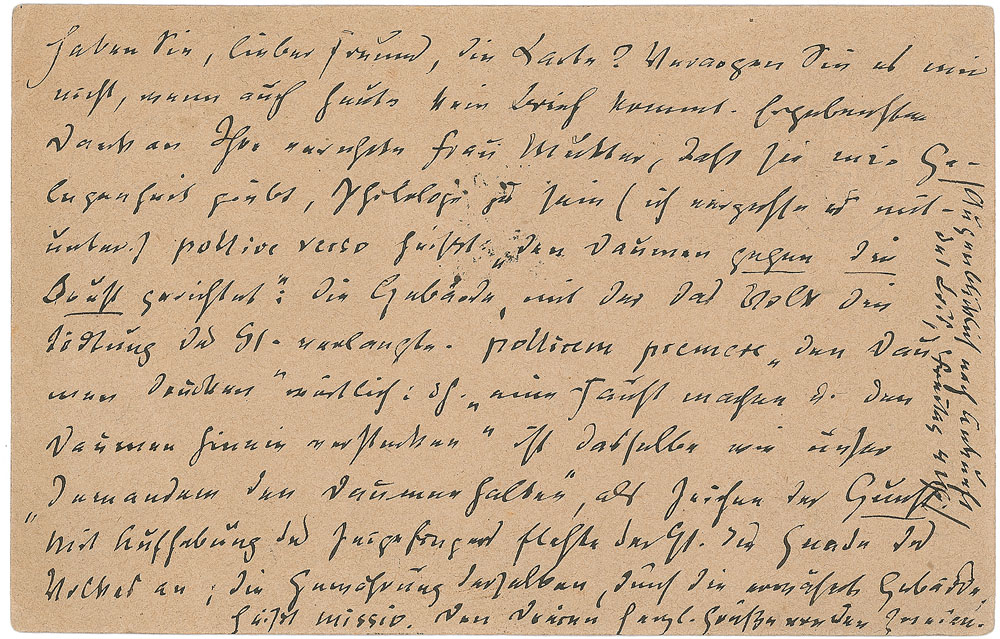 Haben Sie, lieber Freund, die Karte? Verargen Sie es mir
nicht, wenn auch heute kein Brief kommt. Ergebensten
Dank an Ihre verehrte Frau Mutter, daß sie mir Ge-
legenheit giebt, Philologe zu sein (ich vergesse es mit-
unter.) pollice verso heißt: „den Daumen gegen die
Brust gerichtet": die Gebärde, mit der das Volk die
Tödtung des Gl. verlangte. pollicem premere „den Dau
men drücken" wörtlich: dh. „eine Faust machen u. den
Daumen hinein verstecken" ist dasselbe wie unser
„Jemandem den Daumen halten", als Zeichen der Gunst
Mit Aufhebung des Zeigefingers flehte der Gl. die Gnade des
Volkes an; die Gewährung derselben, durch die erwähnte Gebärde,
heißt missio. Den Dreien herzl. Grüße von den Zweien.
Augenblicklich nach Ankunft
des Briefs, Freitag 4 Uhr!